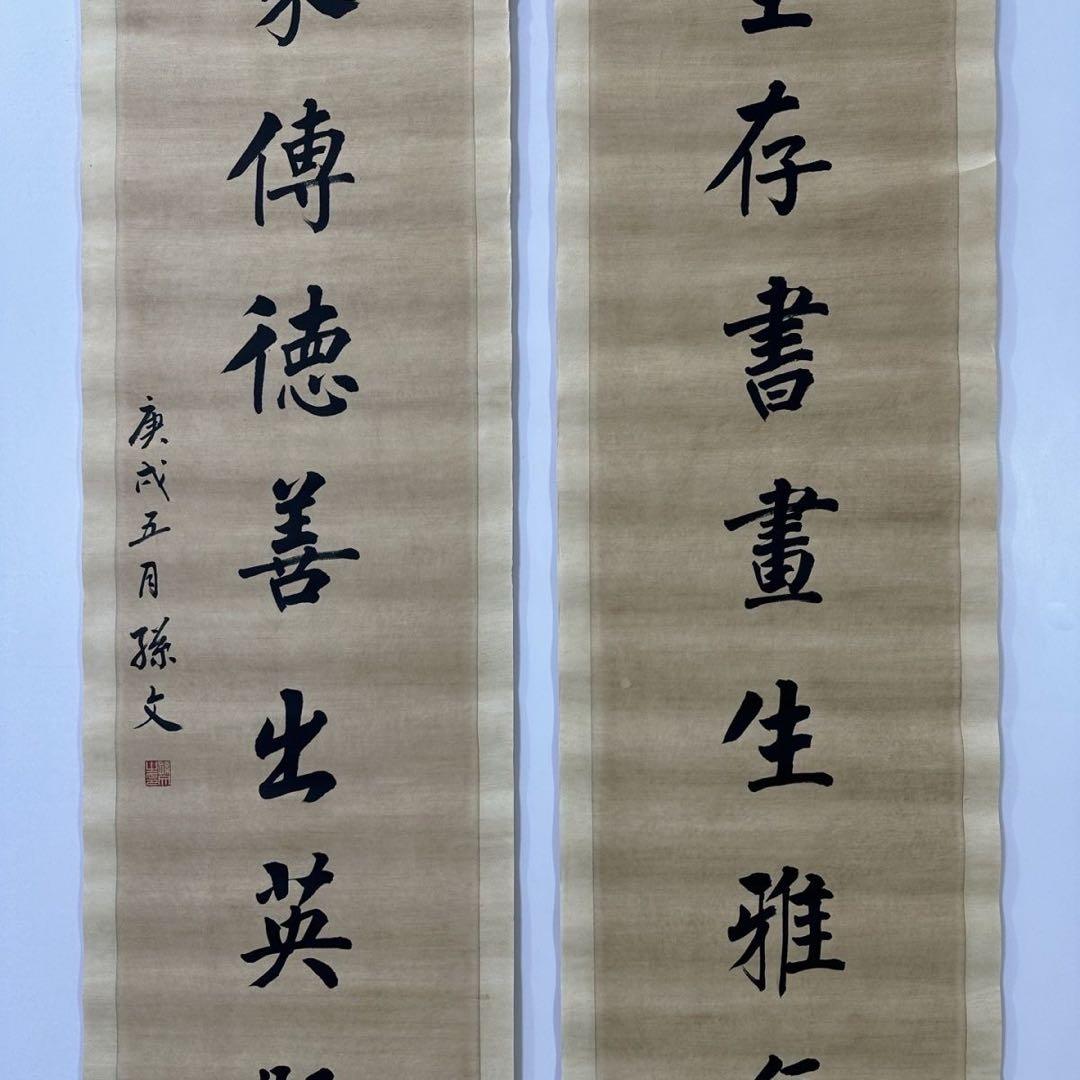 存書畫生雅
傳德善出英
庚戌五月孫文